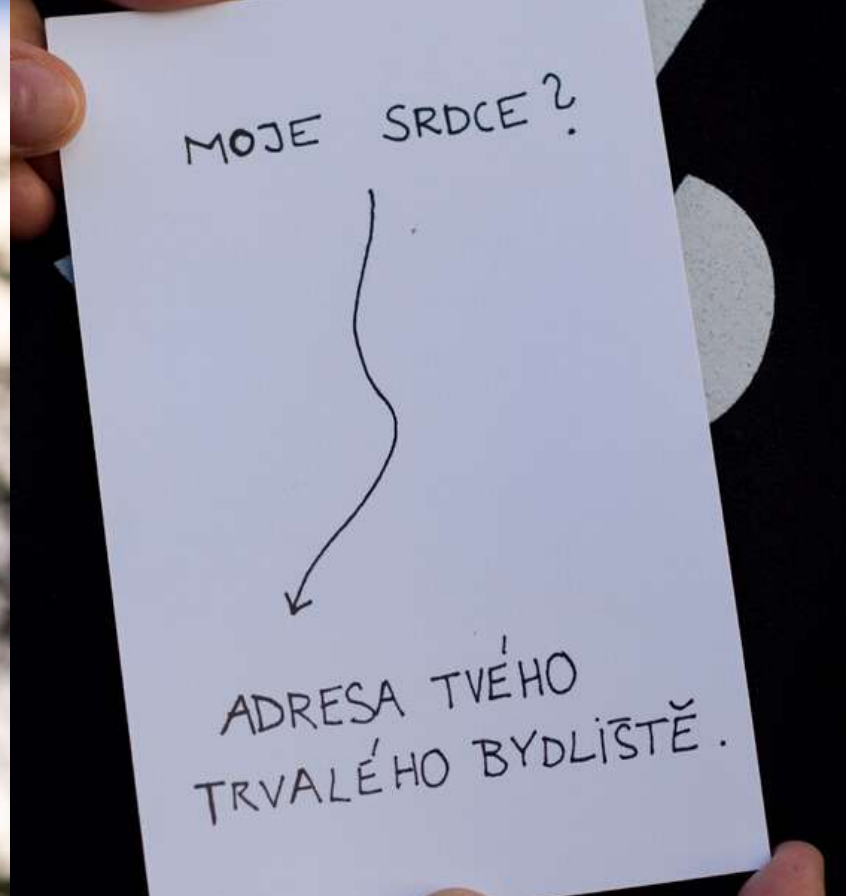 MOJE SRDCE?
ADRESA TVÉHO
TRVALÉHO BYDLIŠTĚ.